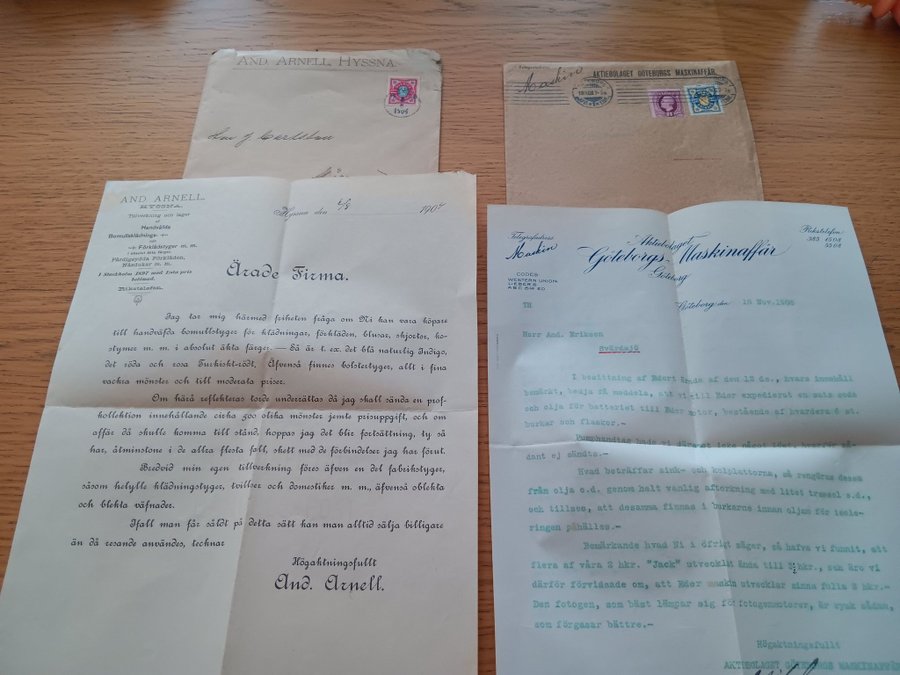 AND. ARNELL, HYSSNA.
Herr J
AKTIEBOLAGET GÖTEBORGS MASKINAFFÄR.
Maskin
AND. ARNELL.
HYSSNA.
Tillverkning och lager
af
Handväfda
Bomullsklädnings-
och
Förklädstyger m. m.
i absolut äkta färger.
Färdigsydda Förkläden,
Näsdukar m. m.
I Stockholm 1897 med 1:sta pris
belönad.
Rikstelefon.
Hyssna den 4/8 1904
Ärade Firma.
Jag tar mig härmed friheten fråga om Ni kan vara köpare
till handväfda bomullstyger för klädningar, förkläden, blusar, skjortor, ko-
stymer m. m. i absolut äkta färger. — Så är t. ex. det blå naturlig Indigo,
det röda och rosa Turkiskt-rödt. Äfvenså finnes bolstertyger, allt i fina
vackra mönster och till moderata priser.
Om härå reflekteras torde underrättas då jag skall sända en prof-
kollektion innehållande cirka 300 olika mönster jemte prisuppgift, och om
affär då skulle komma till stånd, hoppas jag det blir fortsättning, ty så
har, åtminstone i de allra flesta fall, skett med de förbindelser jag har förut.
Bredvid min egen tillverkning föres äfven en del fabrikstyger,
såsom helylle klädningstyger, tvillser och domestiker m. m., äfvenså oblekta
och blekta väfnader.
Ifall man får såldt på detta sätt kan man alltid sälja billigare
än då resande användes, tecknar
Högaktningsfullt
And. Arnell.
Telegrafadress
Maskin
CODES
WESTERN UNION
LIEBERS
A.B.C. 5TH ED
Aktiebolaget
Göteborgs-Maskinaffär
Göteborg
Rikstelefon
385 1503
5504
Göteborg den 18 Nov. 1908
TH
Herr And. Eriksen
Svärdsjö
I besittning af Edert ärade af den 12 ds., hvars innehåll
bemärkt, bedja få meddela, att vi till Eder expedierat en sats gods
och olja för batteriet till Eder motor, bestående af hvardera 6 st.
burkar och flaskor.
Pumphandtag hade vi däremot icke något löst, hvarför så-
dant ej sändts.—
Hvad beträffar zink- och kolplattorna, så rengöras dessa
från olja o.d. genom helt vanlig aftorkning med litet trassel e.d.,
och tillses, att desamma finnas i burkarne innan oljan för isole-
ringen påhälles.—
Bemärkande hvad Ni i öfrigt säger, så hafva vi funnit, att
flera af våra 2 hkr. "Jack" utvecklat ända till 3 hkr., och äro vi
därför förvissade om, att Eder maskin utvecklar sinna fulla 2 hkr.—
Den fotogen, som bäst lämpar sig för fotogenmotorer, är rysk sådan,
som förgasar bättre.—
Högaktningsfullt
AKTIEBOLAGET GÖTEBORGS MASKINAFFÄR